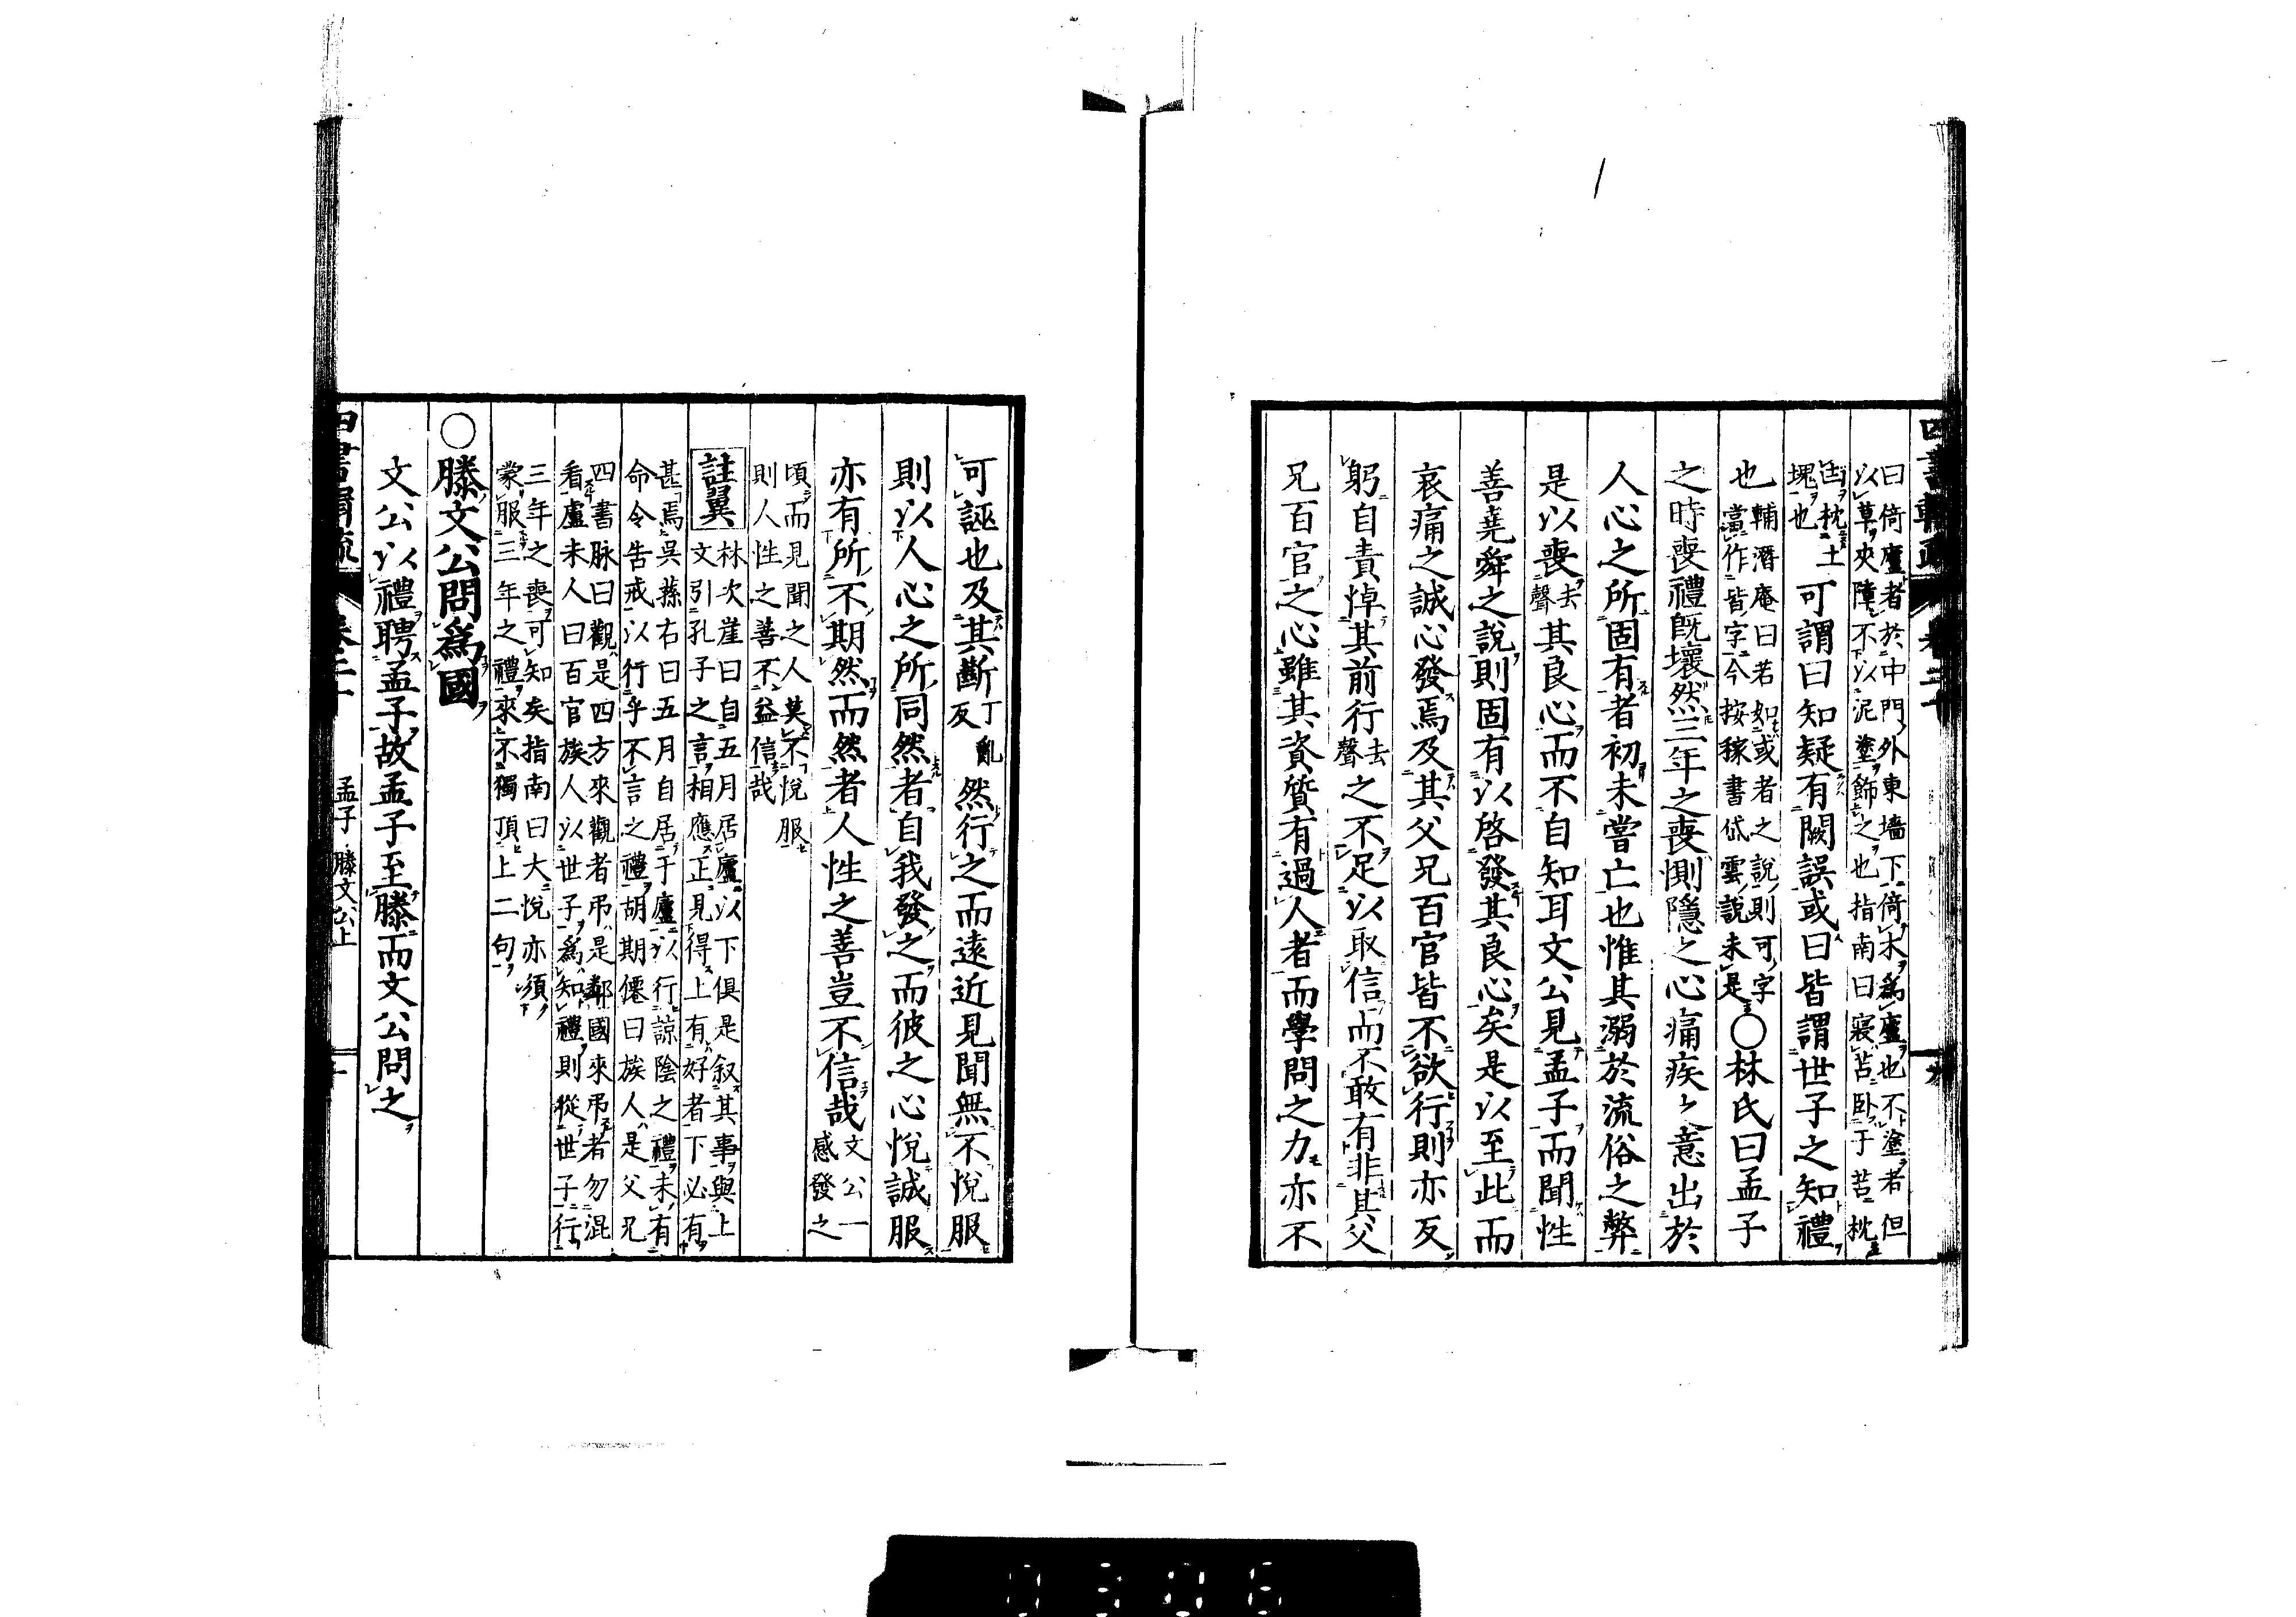 曰倚廬者於中門外東墻下倚木爲廬也不塗者但
以草夾障不以泥塗飾之也指南曰寢苫臥于苫枕
凷枕土
塊也
可謂曰知疑有闕誤或曰皆謂世子之知禮
也
輔潛庵曰若如或者之說則可字
當作皆字今按稼書岱雲說未是
○林氏曰孟子
之時喪禮既壞然三年之喪惻隱之心痛疾之意出於
人心之所固有者初未嘗亡也惟其溺於流俗之弊
是以喪去聲其良心而不自知耳文公見孟子而聞性
善堯舜之說則固有以啓發其良心矣是以至此而
哀痛之誠心發焉及其父兄百官皆不欲行則亦反
躬自責悼其前行去聲之不足以取信而不敢有非其父
兄百官之心雖其資質有過人者而學問之力亦不
可誣也及其斷丁亂反然行之而遠近見聞無不悅服
則以人心之所同然者自我發之而彼之心悅誠服
亦有所不期然而然者人性之善豈不信哉
文公一
感發之
頃而見聞之人莫不悅服
則人性之善不益信哉
註翼
林次崖曰自五月居廬以下俱是叙其事與上
文引孔子之言相應正見得上有好者下必有
甚焉吳蓀右曰五月自居于廬以行諒陰之禮未有
命令告戒以行乎不言之禮胡期僊曰族人是父兄
四書脉曰觀是四方來觀者弔是鄰國來弔者勿混
看盧未人曰百官族人以世子爲知禮則從世子行
三年之喪可知矣指南曰大悅亦須
蒙服三年之禮來不獨頂上二句
○滕文公問爲國
文公以禮聘孟子故孟子至滕而文公問之
孟子 滕文公上